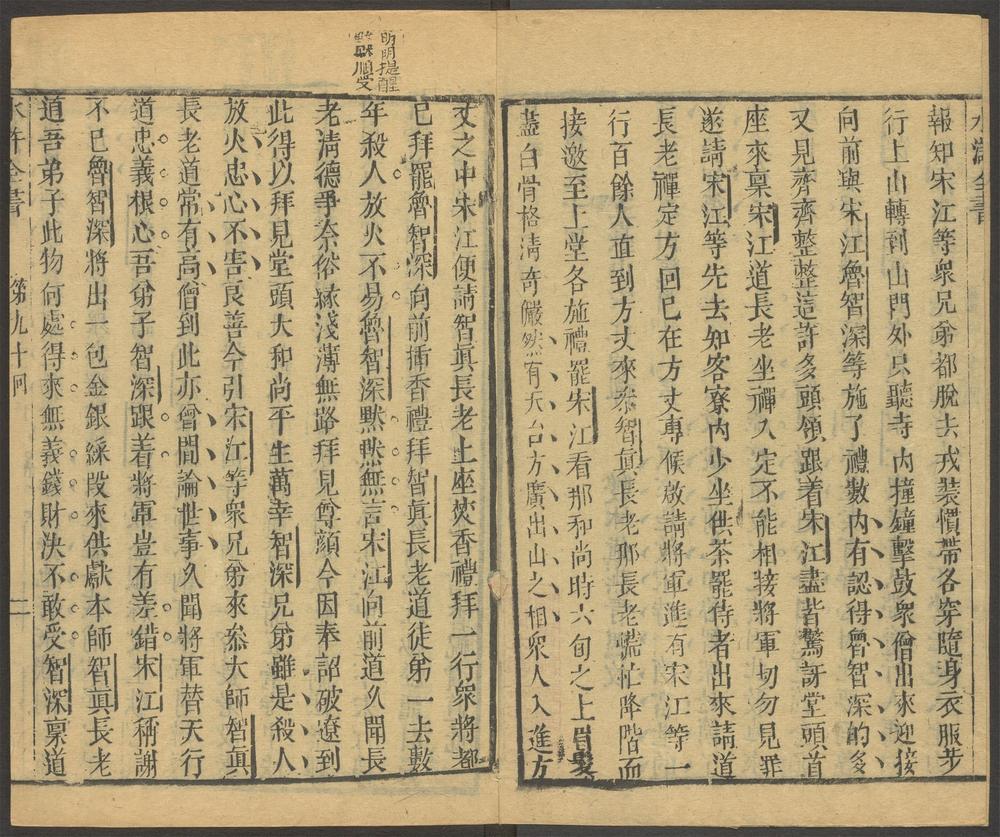 水滸全書
報知宋江等衆兄弟都脫去戎裝慣帶各穿隨身衣服步
行上山轉到山門外只聽寺內撞鐘擊鼓衆僧出來迎接
向前與宋江魯智深等施了禮數內有認得魯智深的多
又見齊齊整整這許多頭領跟着宋江盡皆驚訝堂頭首
座來稟宋江道長老坐禪入定不能相接將軍切勿見罪
遂請宋江等先去知客寮內少坐供茶罷侍者出來請道
長老禪定方回已在方丈專候啟請將軍進有宋江等一
行百餘人直到方丈來叅智眞長老那長老慌忙降階而
接邀至上堂各施禮罷宋江看那和尚時六旬之上眉髮
盡白骨格清奇儼然有天台方廣出山之相衆人入進方
明明提醒
默默順受
丈之中宋江便請智眞長老上座焚香禮拜一行衆將都
已拜罷魯智深向前揷香禮拜智眞長老道徒弟一去數
年殺人放火不易魯智深黙黙無言宋江向前道久聞長
老清德爭奈俗緣淺薄無路拜見尊顔今因奉詔破遼到
此得以拜見堂頭大和尚平生萬幸智深兄弟雖是殺人
放火忠心不害良善今引宋江等衆兄弟來叅大師智眞
長老道常有高僧到此亦曾閒論世事久聞將軍替天行
道忠義根心吾弟子智深跟着將軍豈有差錯宋江稱謝
不已魯智深將出一包金銀綵段來供獻本師智眞長老
道吾弟子此物何處得來無義錢財決不敢受智深稟道
水滸全書 第九十回 二